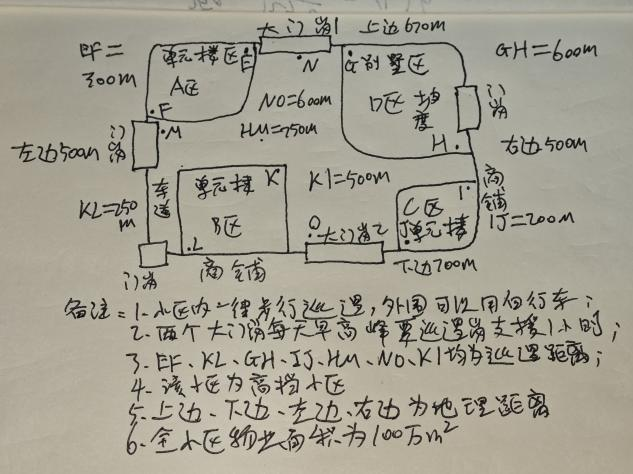 大门岗1 上边670m
EF=300m
单元楼区 E
A区
F
N
G别墅区
D区 坡度
H
GH=600m
门岗
NO=600m
HM=250m
M
门岗
左边500m
右边500m
KL=250m
车道
单元楼 K
B区
L
KI=500m
O
大门岗2
I
C区
J单元楼
商铺
IJ=200m
门岗
商铺
下边700m
备注=1.小区内一律步行巡逻,外围可以用自行车;
2.两个大门岗每天早高峰要巡逻岗支援1小时;
3.EF、KL、GH、IJ、HM、NO、KI均为巡逻距离;
4.该小区为高档小区
5.上边、下边、左边、右边为地理距离
6.全小区物业面积为100万m²